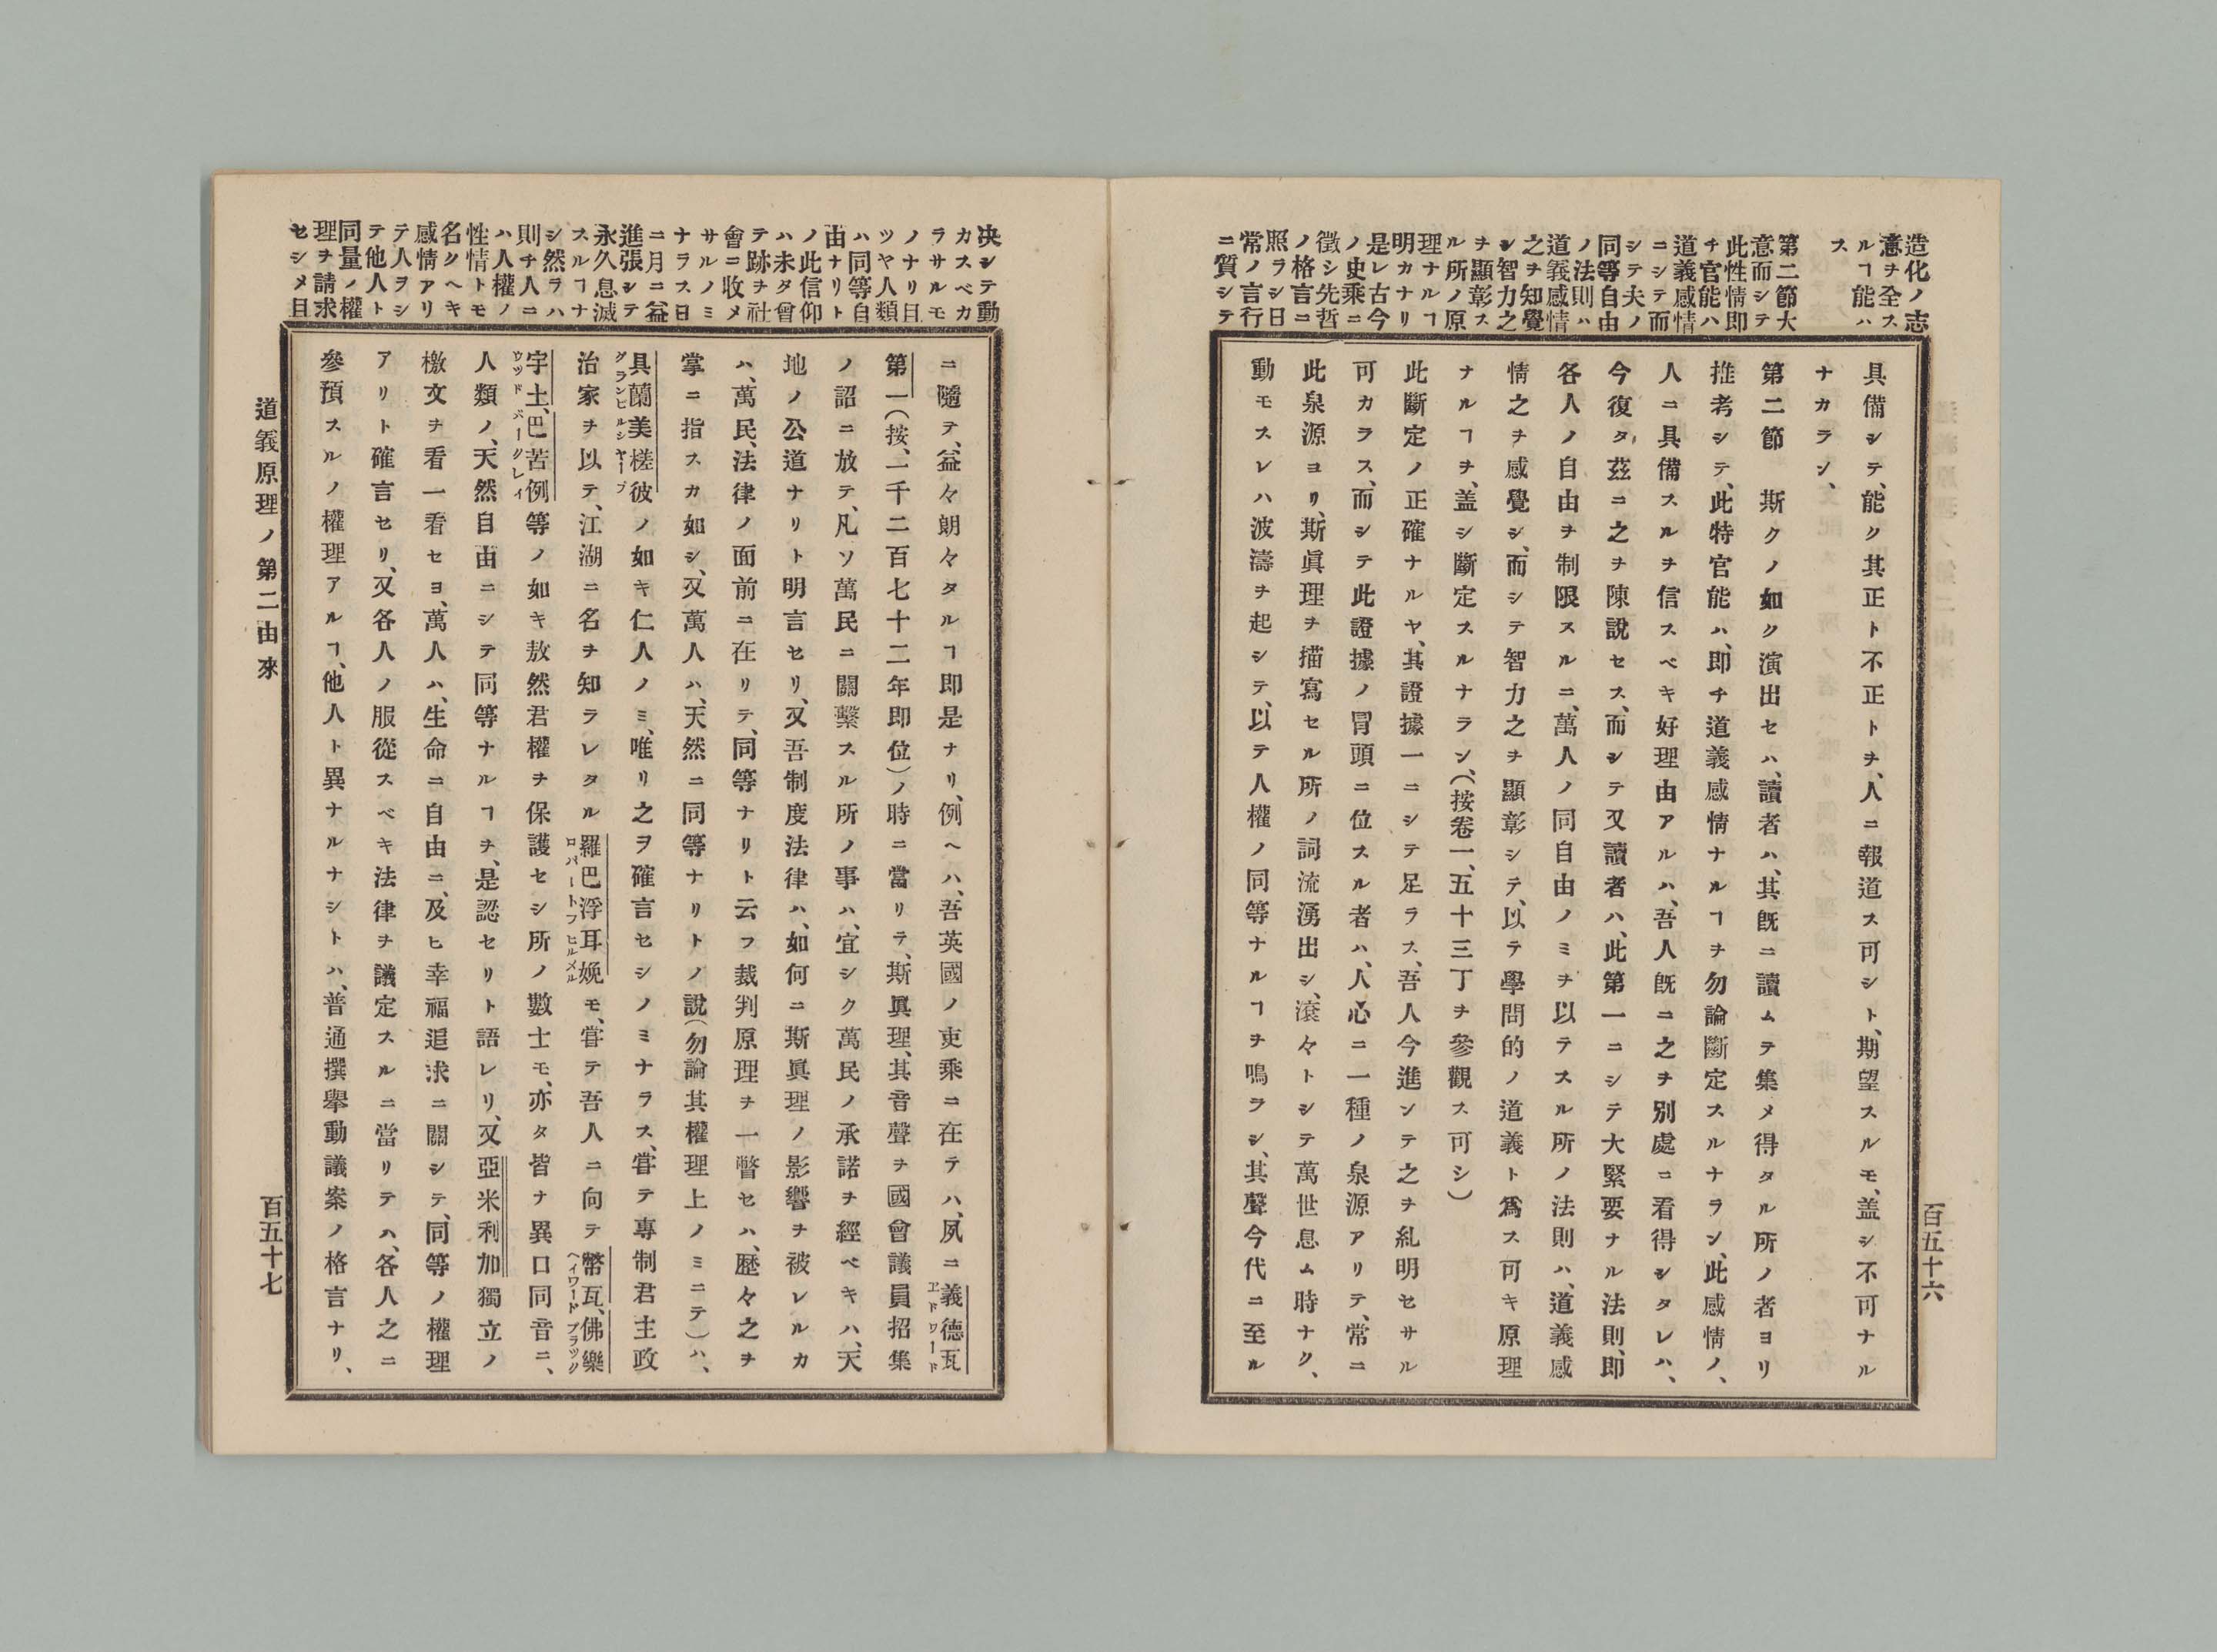 造化ノ志
意ヲ全ス
ルヿ能ハ
ス
第二節大
意而シテ
此性情即
チ官能ハ
道義感情
ニシテ而
シテ夫ノ
同等自由
ノ法則ハ
道義感情
之ヲ知覺
シ智力之
ヲ顯彰ス
ル所ノ原
理ナルヿ
明カナリ
是レ古今
ノ史乘ニ
徵シ先哲
ノ格言ニ
照ラシ日
常ノ言行
ニ質シテ
具備シテ、能ク其正ト不正トヲ、人ニ報道ス可シト、期望スルモ、盖シ不可ナル
ナカラン、
第二節　斯クノ如ク演出セハ、讀者ハ、其旣ニ讀ムテ集メ得タル所ノ者ヨリ
推考シテ、此特官能ハ、即チ道義感情ナルヿヲ勿論斷定スルナラン、此感情ノ、
人ニ具備スルヲ信スベキ好理由アルハ、吾人旣ニ之ヲ別處ニ看得シタレハ、
今復タ茲ニ之ヲ陳說セス、而シテ又讀者ハ、此第一ニシテ大緊要ナル法則、即
各人ノ自由ヲ制限スルニ、萬人ノ同自由ノミヲ以テスル所ノ法則ハ、道義感
情之ヲ感覺シ、而シテ智力之ヲ顯彰シテ、以テ學問的ノ道義ト爲ス可キ原理
ナルヿヲ、盖シ斷定スルナラン、（按卷一、五十三丁ヲ參觀ス可シ）
此斷定ノ正確ナルヤ、其證據一ニシテ足ラス、吾人今進ンテ之ヲ糺明セサル
可カラス、而シテ此證據ノ冐頭ニ位スル者ハ、人心ニ一種ノ泉源アリテ、常ニ
此泉源ヨリ、斯眞理ヲ描寫セル所ノ詞流湧出シ、滾々トシテ萬世息ム時ナク、
動モスレハ波濤ヲ起シテ、以テ人權ノ同等ナルヿヲ鳴ラシ、其聲今代ニ至ル
百五十六
决シテ動
カスベカ
ラサルモ
ノナリ且
ツヤ人類
ハ同等自
由ナリト
ノ此信仰
ハ未タ曾
テ跡ヲ社
會ニ收メ
サルノミ
ナラス日
ニ月ニ益
進張シテ
永久息滅
スルヿナ
シ然ラハ
則チ人ニ
ハ人權ノ
性情トモ
名クヘキ
感情アリ
テ人ヲシ
テ他人ト
同量ノ權
理ヲ請求
セシメ且
ニ隨テ、益々朗々タルヿ即是ナリ、例ヘハ、吾英國ノ吏乘ニ在テハ、夙ニ義德瓦
ヱドワード
第一（按、一千二百七十二年即位）ノ時ニ當リテ、斯眞理、其音聲ヲ國會議員招集
ノ詔ニ放テ、凡ソ萬民ニ關繫スル所ノ事ハ、宜シク萬民ノ承諾ヲ經ベキハ、天
地ノ公道ナリト明言セリ、又吾制度法律ハ、如何ニ斯眞理ノ影響ヲ被レルカ
ハ、萬民、法律ノ面前ニ在リテ、同等ナリト云フ裁判原理ヲ一瞥セハ、歷々之ヲ
掌ニ指スカ如シ、又萬人ハ、天然ニ同等ナリトノ說（勿論其權理上ノミニテ）ハ、
具蘭美槎彼ノ如キ仁人ノミ、唯リ之ヲ確言セシノミナラス、甞テ專制君主政
グランビルシヤープ
治家ヲ以テ、江湖ニ名ヲ知ラレタル羅巴浮耳娩モ、甞テ吾人ニ向テ幣瓦、佛樂
ロバートフヒルメル　ヘイワード　ブラック
宇土、巴苦例等ノ如キ敖然君權ヲ保護セシ所ノ數士モ、亦タ皆ナ異口同音ニ、
ウツド　バークレイ
人類ノ、天然自由ニシテ同等ナルヿヲ、是認セリト語レリ、又亞米利加獨立ノ
檄文ヲ看一看セヨ、萬人ハ、生命ニ自由ニ、及ヒ幸福追求ニ關シテ、同等ノ權理
アリト確言セリ、又各人ノ服從スベキ法律ヲ議定スルニ當リテハ、各人之ニ
參預スルノ權理アルヿ、他人ト異ナルナシトハ、普通撰擧動議案ノ格言ナリ、
道義原理ノ第二由來
百五十七